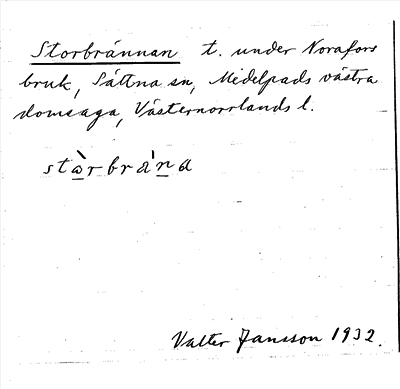 Storbrännan t. under Norafors
bruk, Sättna sn, Medelpads västra
domsaga, Västernorrlands l.
stò̲rbrän̲a
Valter Jansson 1932.